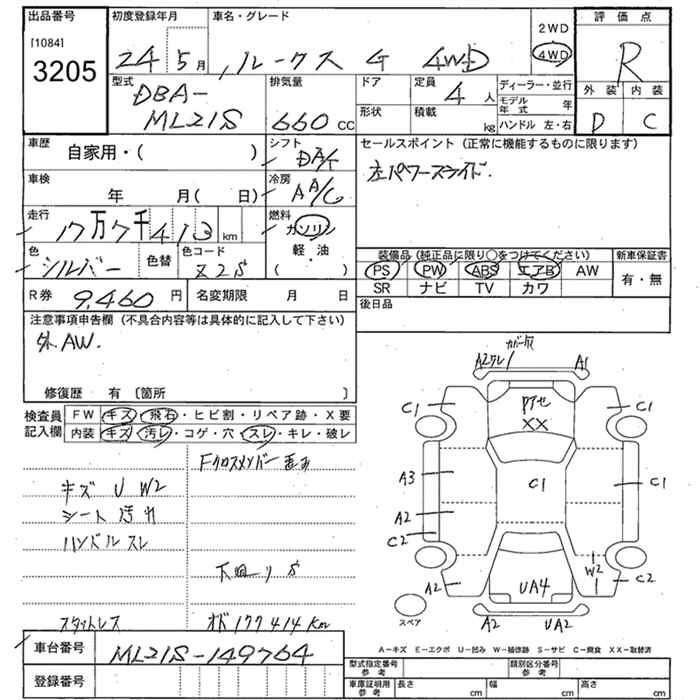 出品番号 初度登録年月 車名・グレード 2WD 評価点
[1084] 24年 5月 ルークス G 4WD 4WD R
3205
型式 DBA- 排気量 ドア 定員 4人 ディーラー・並行 外装 内装
形状 積載 モデル年式 年
ML21S 660cc kg ハンドル 左・右 D C
車歴 自家用・( ) シフト DA/T セールスポイント (正常に機能するものに限ります)
車検 年 月( 日) 冷房 AA/C 左パワースライド.
走行 17万7千413km 燃料 ガソリン
色 シルバー 色替 色コード Z2S 軽・油 ( ) 装備品 (純正品に限り○をつけてください) 新車保証書
PS PW ABS エアB AW 有・無
R券 9,460円 名変期限 月 日 SR ナビ TV カワ
注意事項申告欄 (不具合内容等は具体的に記入して下さい) 後日品
外AW.
修復歴 有 [箇所 ]
検査員 FW キズ・飛石・ヒビ割・リペア跡・X要
記入欄 内装 キズ・汚レ・コゲ・穴・スレ・キレ・破レ
Fクロスメンバー
キズ U W2
シート汚れ
ハンドルスレ
下回りS
スタットレス オド177414Km
カバー欠
A2 ワレ A1
C1 XX C1
A3 C1 C1
A2
C2
W2
A2 UA4 C2
スペア A2 UA2
A-キズ E-エクボ U-凹み W-補修跡 S-サビ C-腐食 XX-取替済
車台番号 ML21S-149764
型式指定番号 参考 類別区分番号 参考
登録番号 車庫証明用 参考 長さ cm 幅 cm 高さ cm